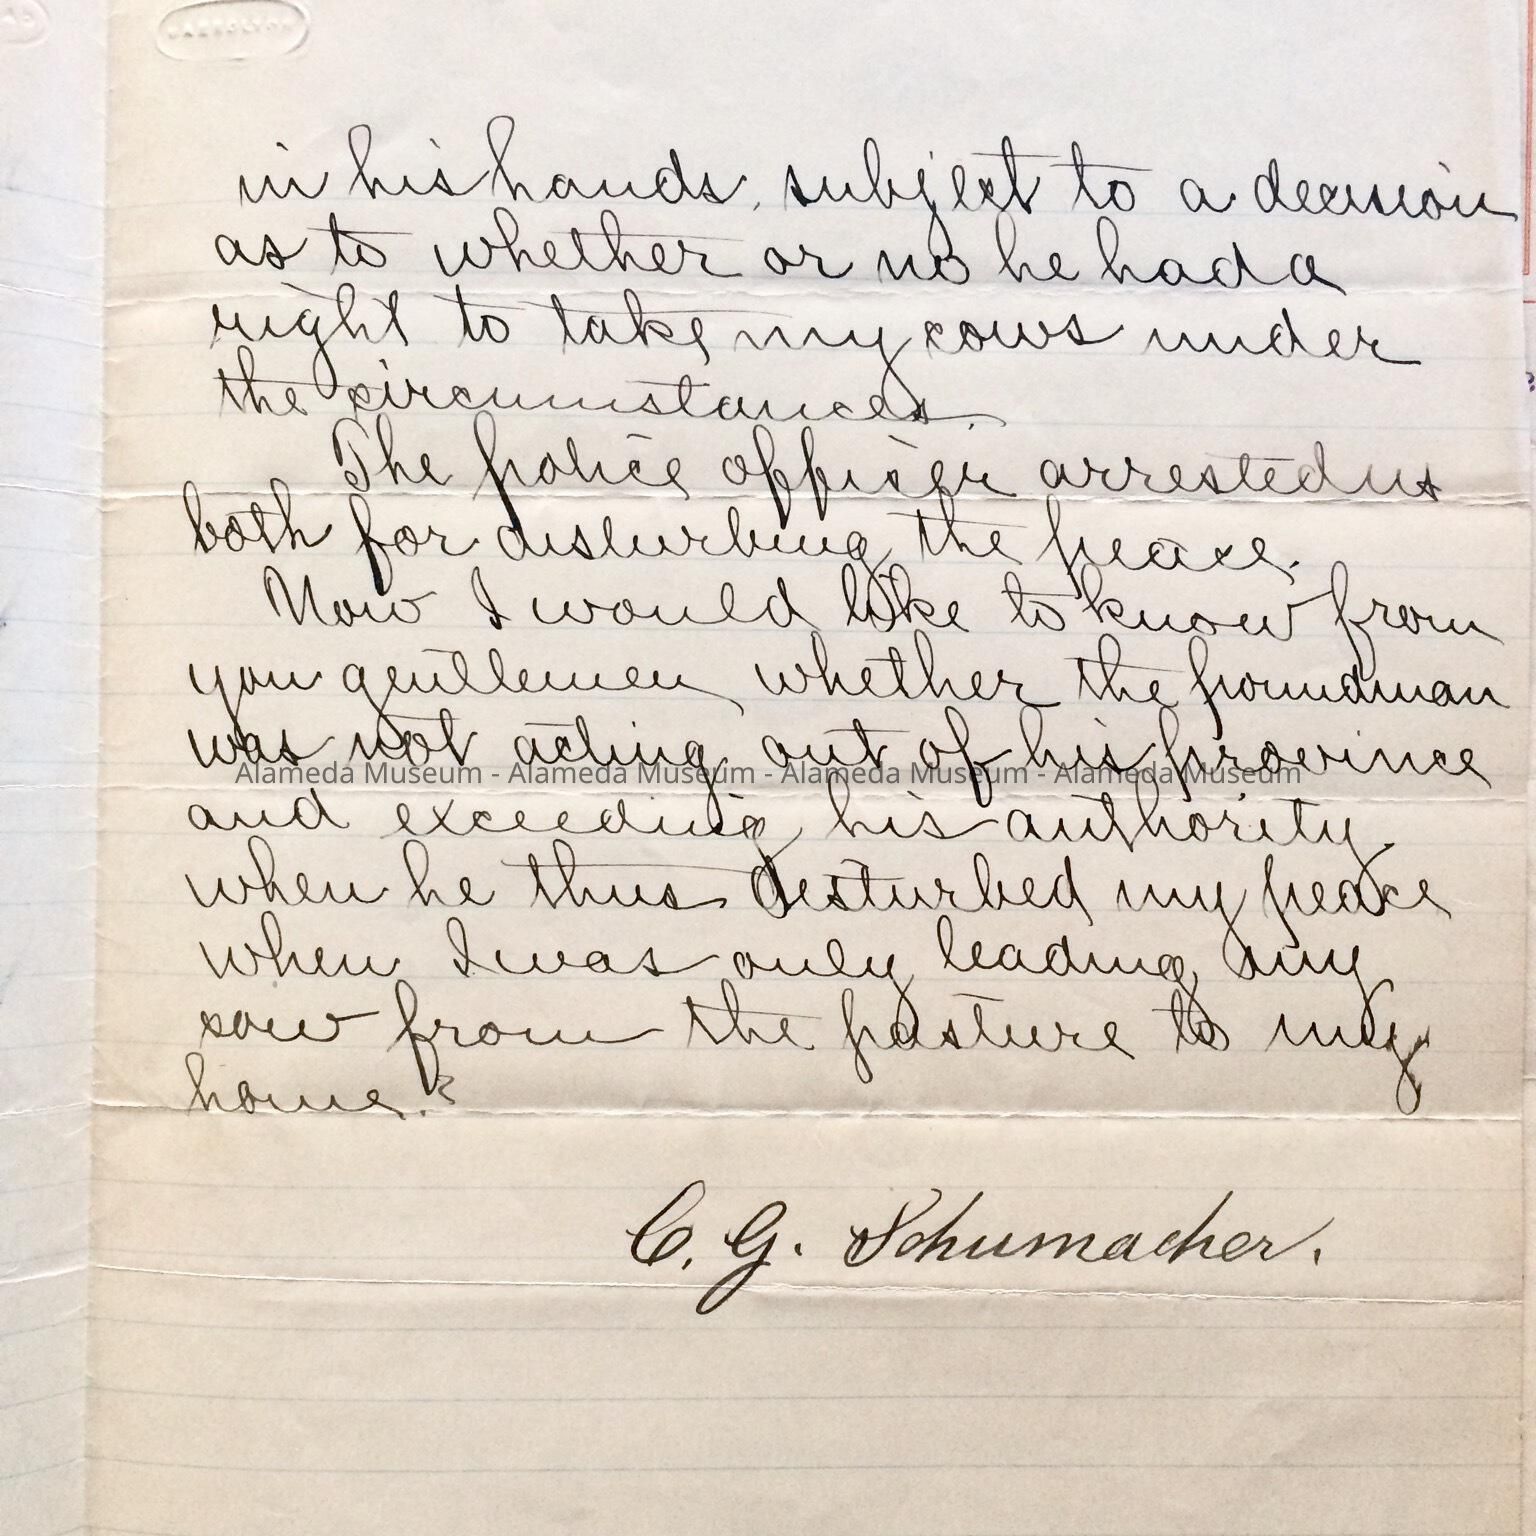 in his hands, subject to a decision
as to whether or no he had a
right to take my cows under
the circumstances.
The police officer arrested us
both for disturbing the peace.
Now I would like to know from
you gentlemen whether the poundman
was not acting out of his province
Alameda Museum - Alameda Museum - Alameda Museum - Alameda Museum
and exceeding his authority
when he thus disturbed my peace
when I was only leading my
cow from the pasture to my
home.?
C. G. Schumacher.